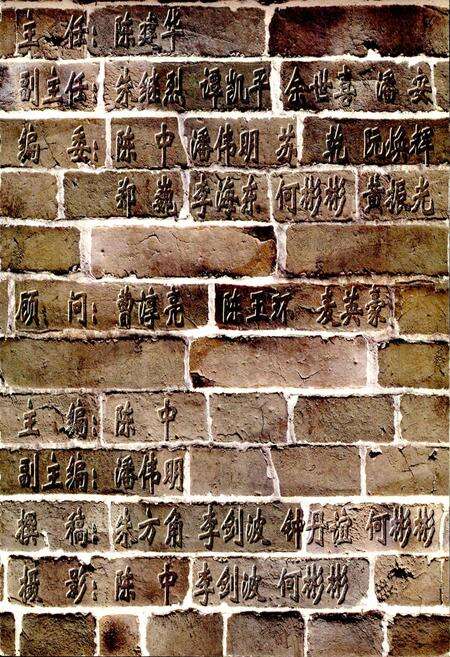 主 任：陈建华
副主任：朱继烈 谭凯平 余世喜 潘 安
编 委：陈 中 潘伟明 苏 乾 阮焕辉
郑 燕 李海东 何彬彬 黄振光
顾 问：曹淳亮 陈玉环 麦英豪
主 编：陈 中
副主编：潘伟明
撰 稿：朱方角 李剑波 钟丹谊 何彬彬
摄 影：陈 中 李剑波 何彬彬